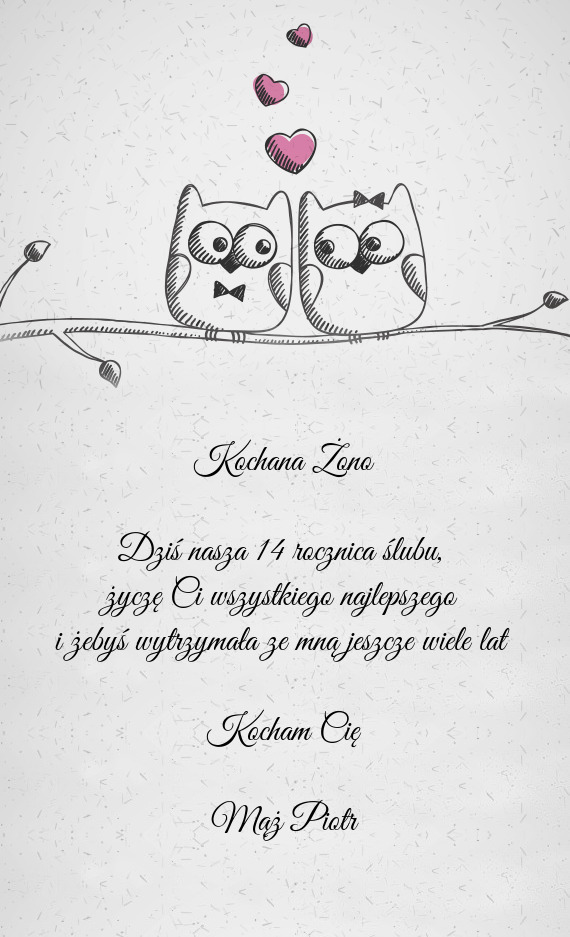 Kochana Żono
Dziś nasza 14 rocznica ślubu,
życzę Ci wszystkiego najlepszego
i żebyś wytrzymała ze mną jeszcze wiele lat
Kocham Cię
Mąż Piotr